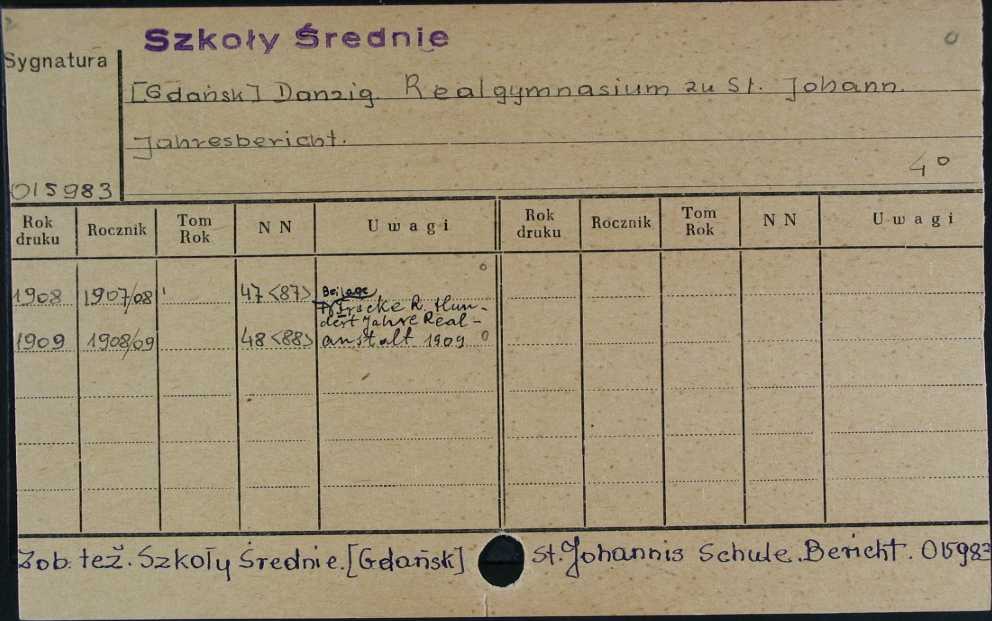 Szkoły Średnie
Sygnatura
[Gdańsk] Danzig. Realgymnasium zu St. Johann.
Jahresbericht.
4°
015983
Rok druku Rocznik Tom Rok NN Uwagi Rok druku Rocznik Tom Rok NN Uwagi
1908 1907/08 47 <87> Beilage
R. Hun-
dert Jahre Real-
1909 1908/09 48 <88> anstalt 1909
Zob. też. Szkoły Średnie. [Gdańsk] St. Johannis Schule. Bericht. 015983